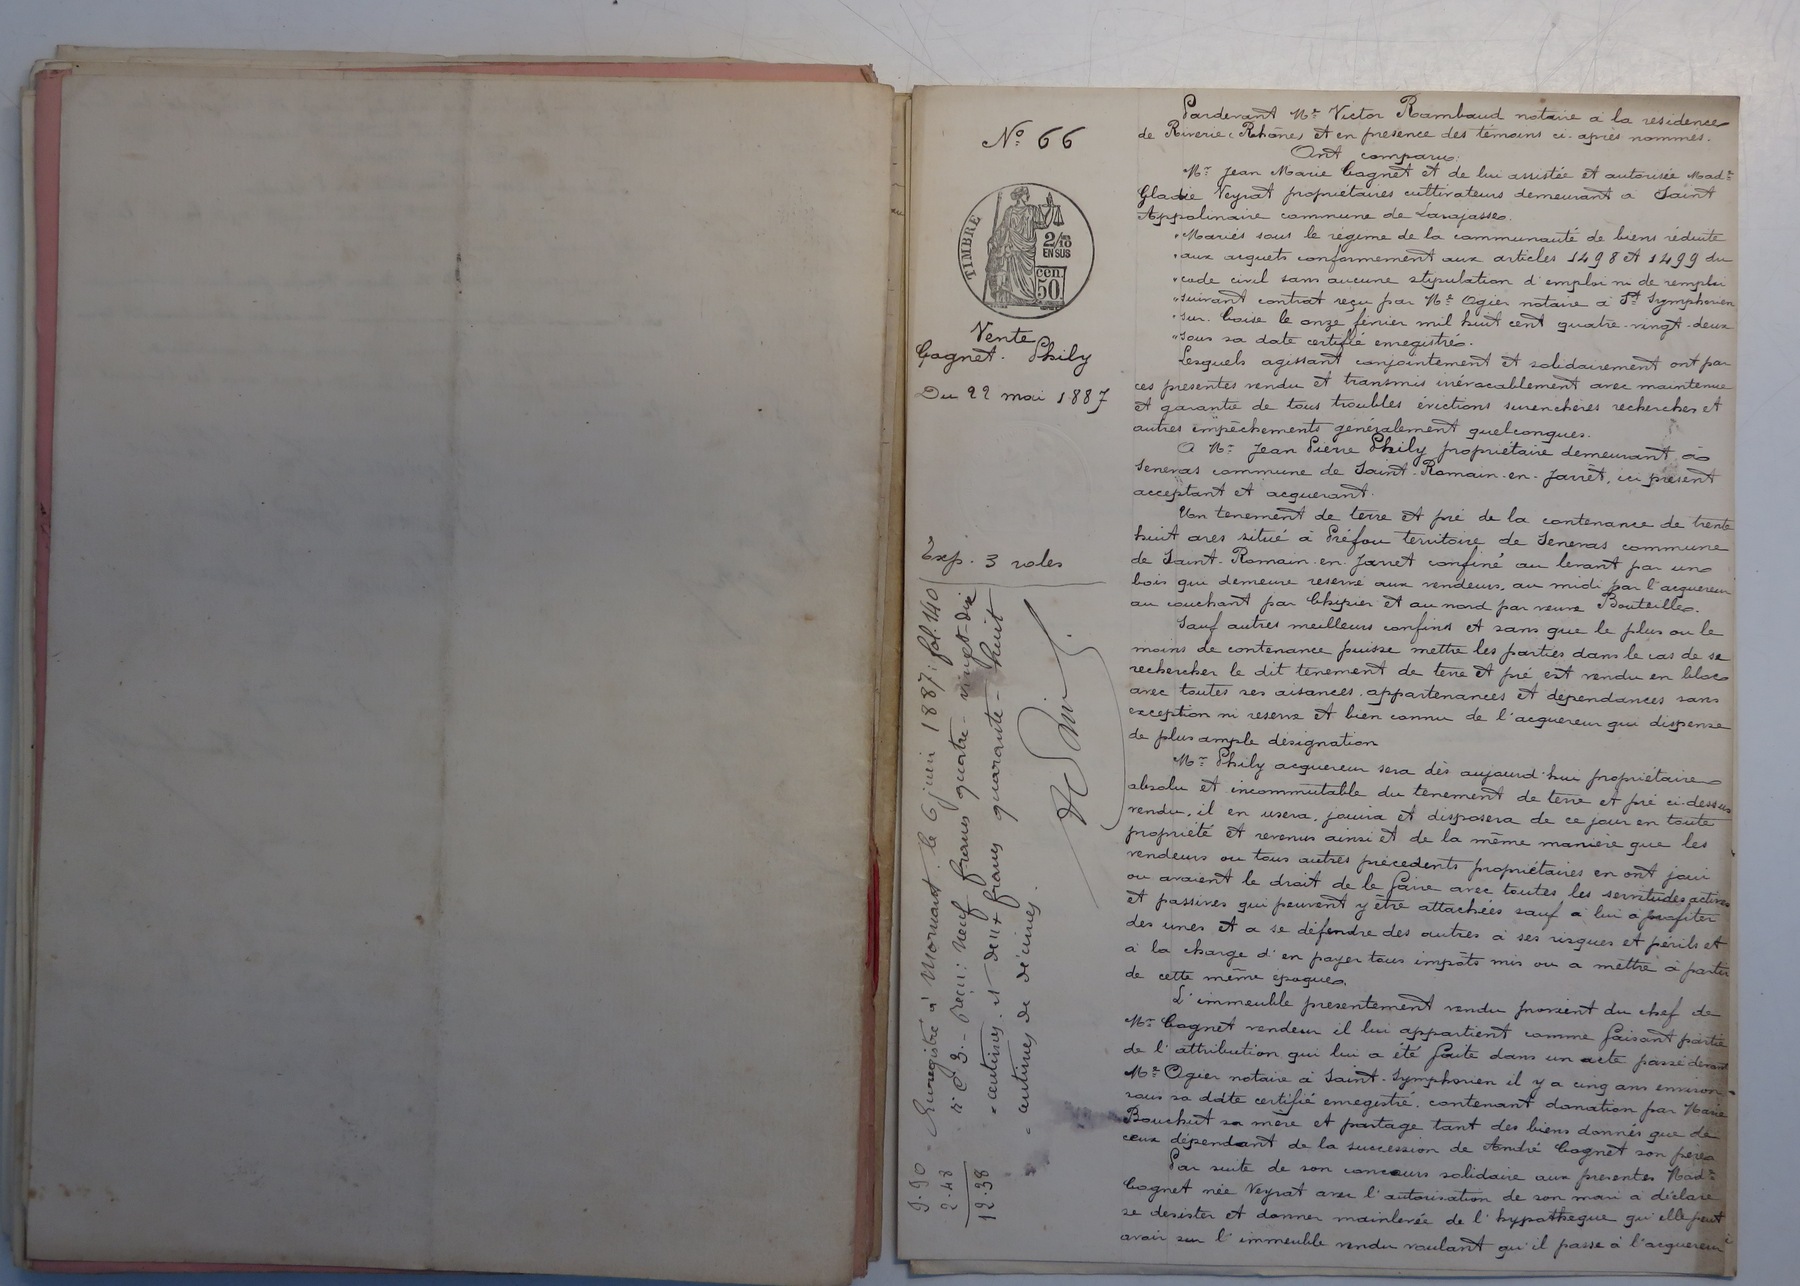 Nº 66
TIMBRE
2/10
EN SUS
cen.
50
Vente
Cognet. Phily
Du 22 mai 1887
Exp. 3 roles
Enregistré à Mornant le 6 juin 1887, fol. 140
c. 3. - Reçu: neuf francs quatre-vingt-dix
centimes et deux francs quarante-huit
centimes de décimes.
9.90
2.48
12.38
Pardevant Mᵉ Victor Rambaud notaire à la résidence
de Riverie (Rhône) et en presence des témoins ci-après nommés.
Ont comparu:
Mʳ Jean Marie Cognet et de lui assistée et autorisée Madᵉ
Gladie Veyrat propriétaires cultivateurs demeurant à Saint
Appolinaire commune de Larajasse.
"Mariés sous le régime de la communauté de biens réduite
"aux acquets conformement aux articles 1498 et 1499 du
"code civil sans aucune stipulation d'emploi ni de remploi
"suivant contrat reçu par Mᵉ Ogier notaire à Sᵗ Symphorien
"sur-Coise le onze février mil huit cent quatre-vingt-deux
"sous sa date certifié enregistré.
Lesquels agissant conjointement et solidairement ont par
ces présentes vendu et transmis irrévocablement avec maintenue
et garantie de tous troubles évictions surenchères recherches et
autres empêchements généralement quelconques.
A Mʳ Jean Pierre Phily propriétaire demeurant à
Seneras commune de Saint-Romain-en-Jarrêt, ici présent
acceptant et acquerant.
Un tenement de terre et pré de la contenance de trente
huit ares situé à Préfou territoire de Seneras commune
de Saint-Romain-en-Jarret confiné au levant par un
bois qui demeure reservé aux vendeurs, au midi par l'acquereur
au couchant par Chipier et au nord par veuve Bouteille.
Sauf autres meilleurs confins et sans que le plus ou le
moins de contenance puisse mettre les parties dans le cas de se
rechercher le dit tenement de terre et pré est vendu en bloc
avec toutes ses aisances, appartenances et dependances sans
exception ni reserve et bien connu de l'acquereur qui dispense
de plus ample désignation
Mʳ Phily acquereur sera dès aujourd'hui propriétaire
absolu et incommutable du tenement de terre et pré ci-dessus
vendu, il en usera, jouira et disposera de ce jour en toute
propriété et revenus ainsi et de la même manière que les
vendeurs ou tous autres précedents propriétaires en ont joui
ou avaient le droit de le faire avec toutes les servitudes actives
et passives qui peuvent y être attachées sauf à lui à profiter
des unes et a se défendre des autres à ses risques et périls et
a la charge d'en payer tous impôts mis ou a mettre à partir
de cette même epoque.
L'immeuble presentement vendu provient du chef de
Mʳ Cognet vendeur il lui appartient comme faisant partie
de l'attribution qui lui a été faite dans un acte passé devant
Mᵉ Ogier notaire à Saint-Symphorien il y a cinq ans environ
sous sa date certifié enregistré, contenant donation par Marie
Bouchut sa mère et partage tant des biens donnés que de
ceux dépendant de la succession de André Cognet son père
Par suite de son concours solidaire aux presentes Madᵉ
Cognet née Veyrat avec l'autorisation de son mari a déclaré
se desister et donner mainlevée de l'hypotheque qu'elle peut
avoir sur l'immeuble vendu voulant qu'il passe à l'acquereur